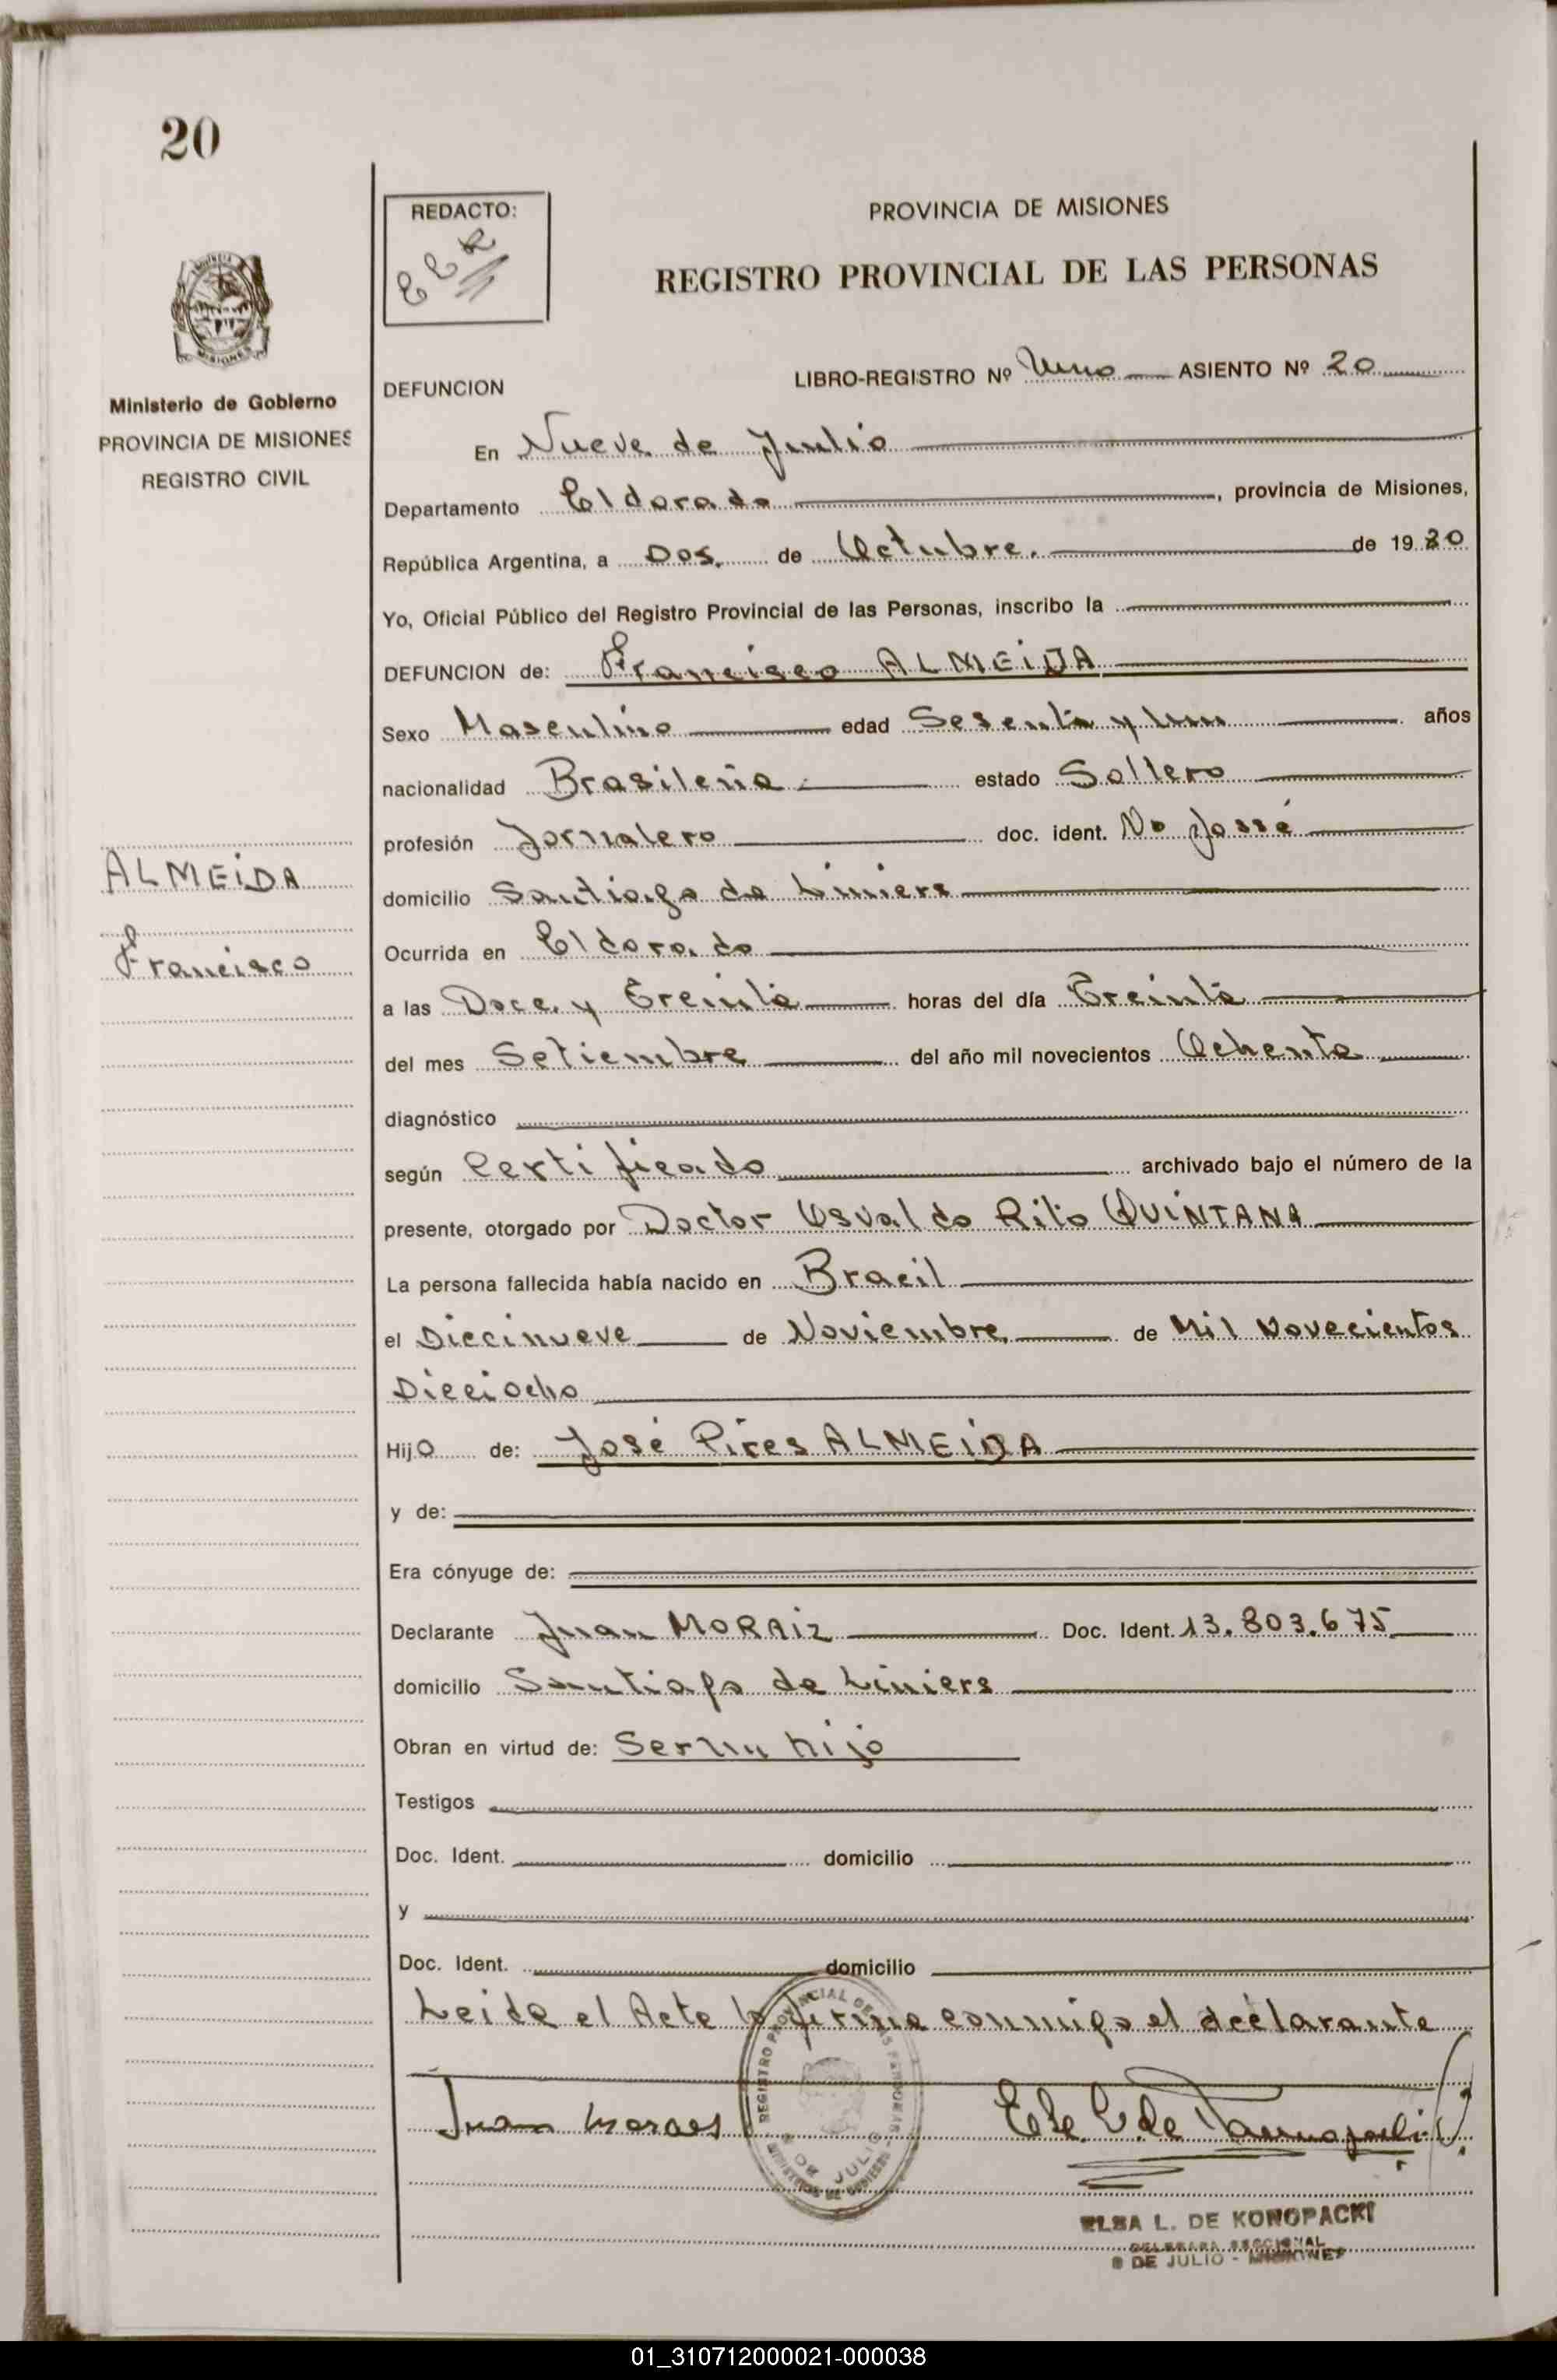 20
REDACTO:
PROVINCIA DE MISIONES
REGISTRO PROVINCIAL DE LAS PERSONAS
Ministerio de Gobierno
PROVINCIA DE MISIONES
REGISTRO CIVIL
DEFUNCION
LIBRO-REGISTRO Nº Uno ASIENTO Nº 20
En Nueve de Julio
Departamento Eldorado, provincia de Misiones,
República Argentina, a Dos de Octubre. de 1980
Yo, Oficial Público del Registro Provincial de las Personas, inscribo la
DEFUNCION de: Francisco ALMEiDA
Sexo Masculino edad Sesenta y Un años
nacionalidad Brasileña estado Soltero
profesión Jornalero doc. ident. No
ALMEiDA
domicilio Santiago de Liniers
Francisco
Ocurrida en Eldorado
a las Doce y Treinta horas del día Treinta
del mes Setiembre del año mil novecientos Ochenta
diagnóstico
según Certificado archivado bajo el número de la
presente, otorgado por Doctor Osvaldo Rito QUiNTANA
La persona fallecida había nacido en Bracil
el Diecinueve de Noviembre de Mil Novecientos
Dieciocho
Hijo de: José Pires ALMEiDA
y de:
Era cónyuge de:
Declarante Juan MORAiZ Doc. Ident. 13.803.675
domicilio Santiago de Liniers
Obran en virtud de: Ser un hijo
Testigos
Doc. Ident. domicilio
y
Doc. Ident. domicilio
Leida el Acta la firma conmigo el declarante
Juan Moraes
REGISTRO PROVINCIAL DE LAS PERSONAS
9 DE JULIO
ELSA L. DE KONOPACKI
DELEGADA SECCIONAL
9 DE JULIO - MISIONES
01_310712000021-000038